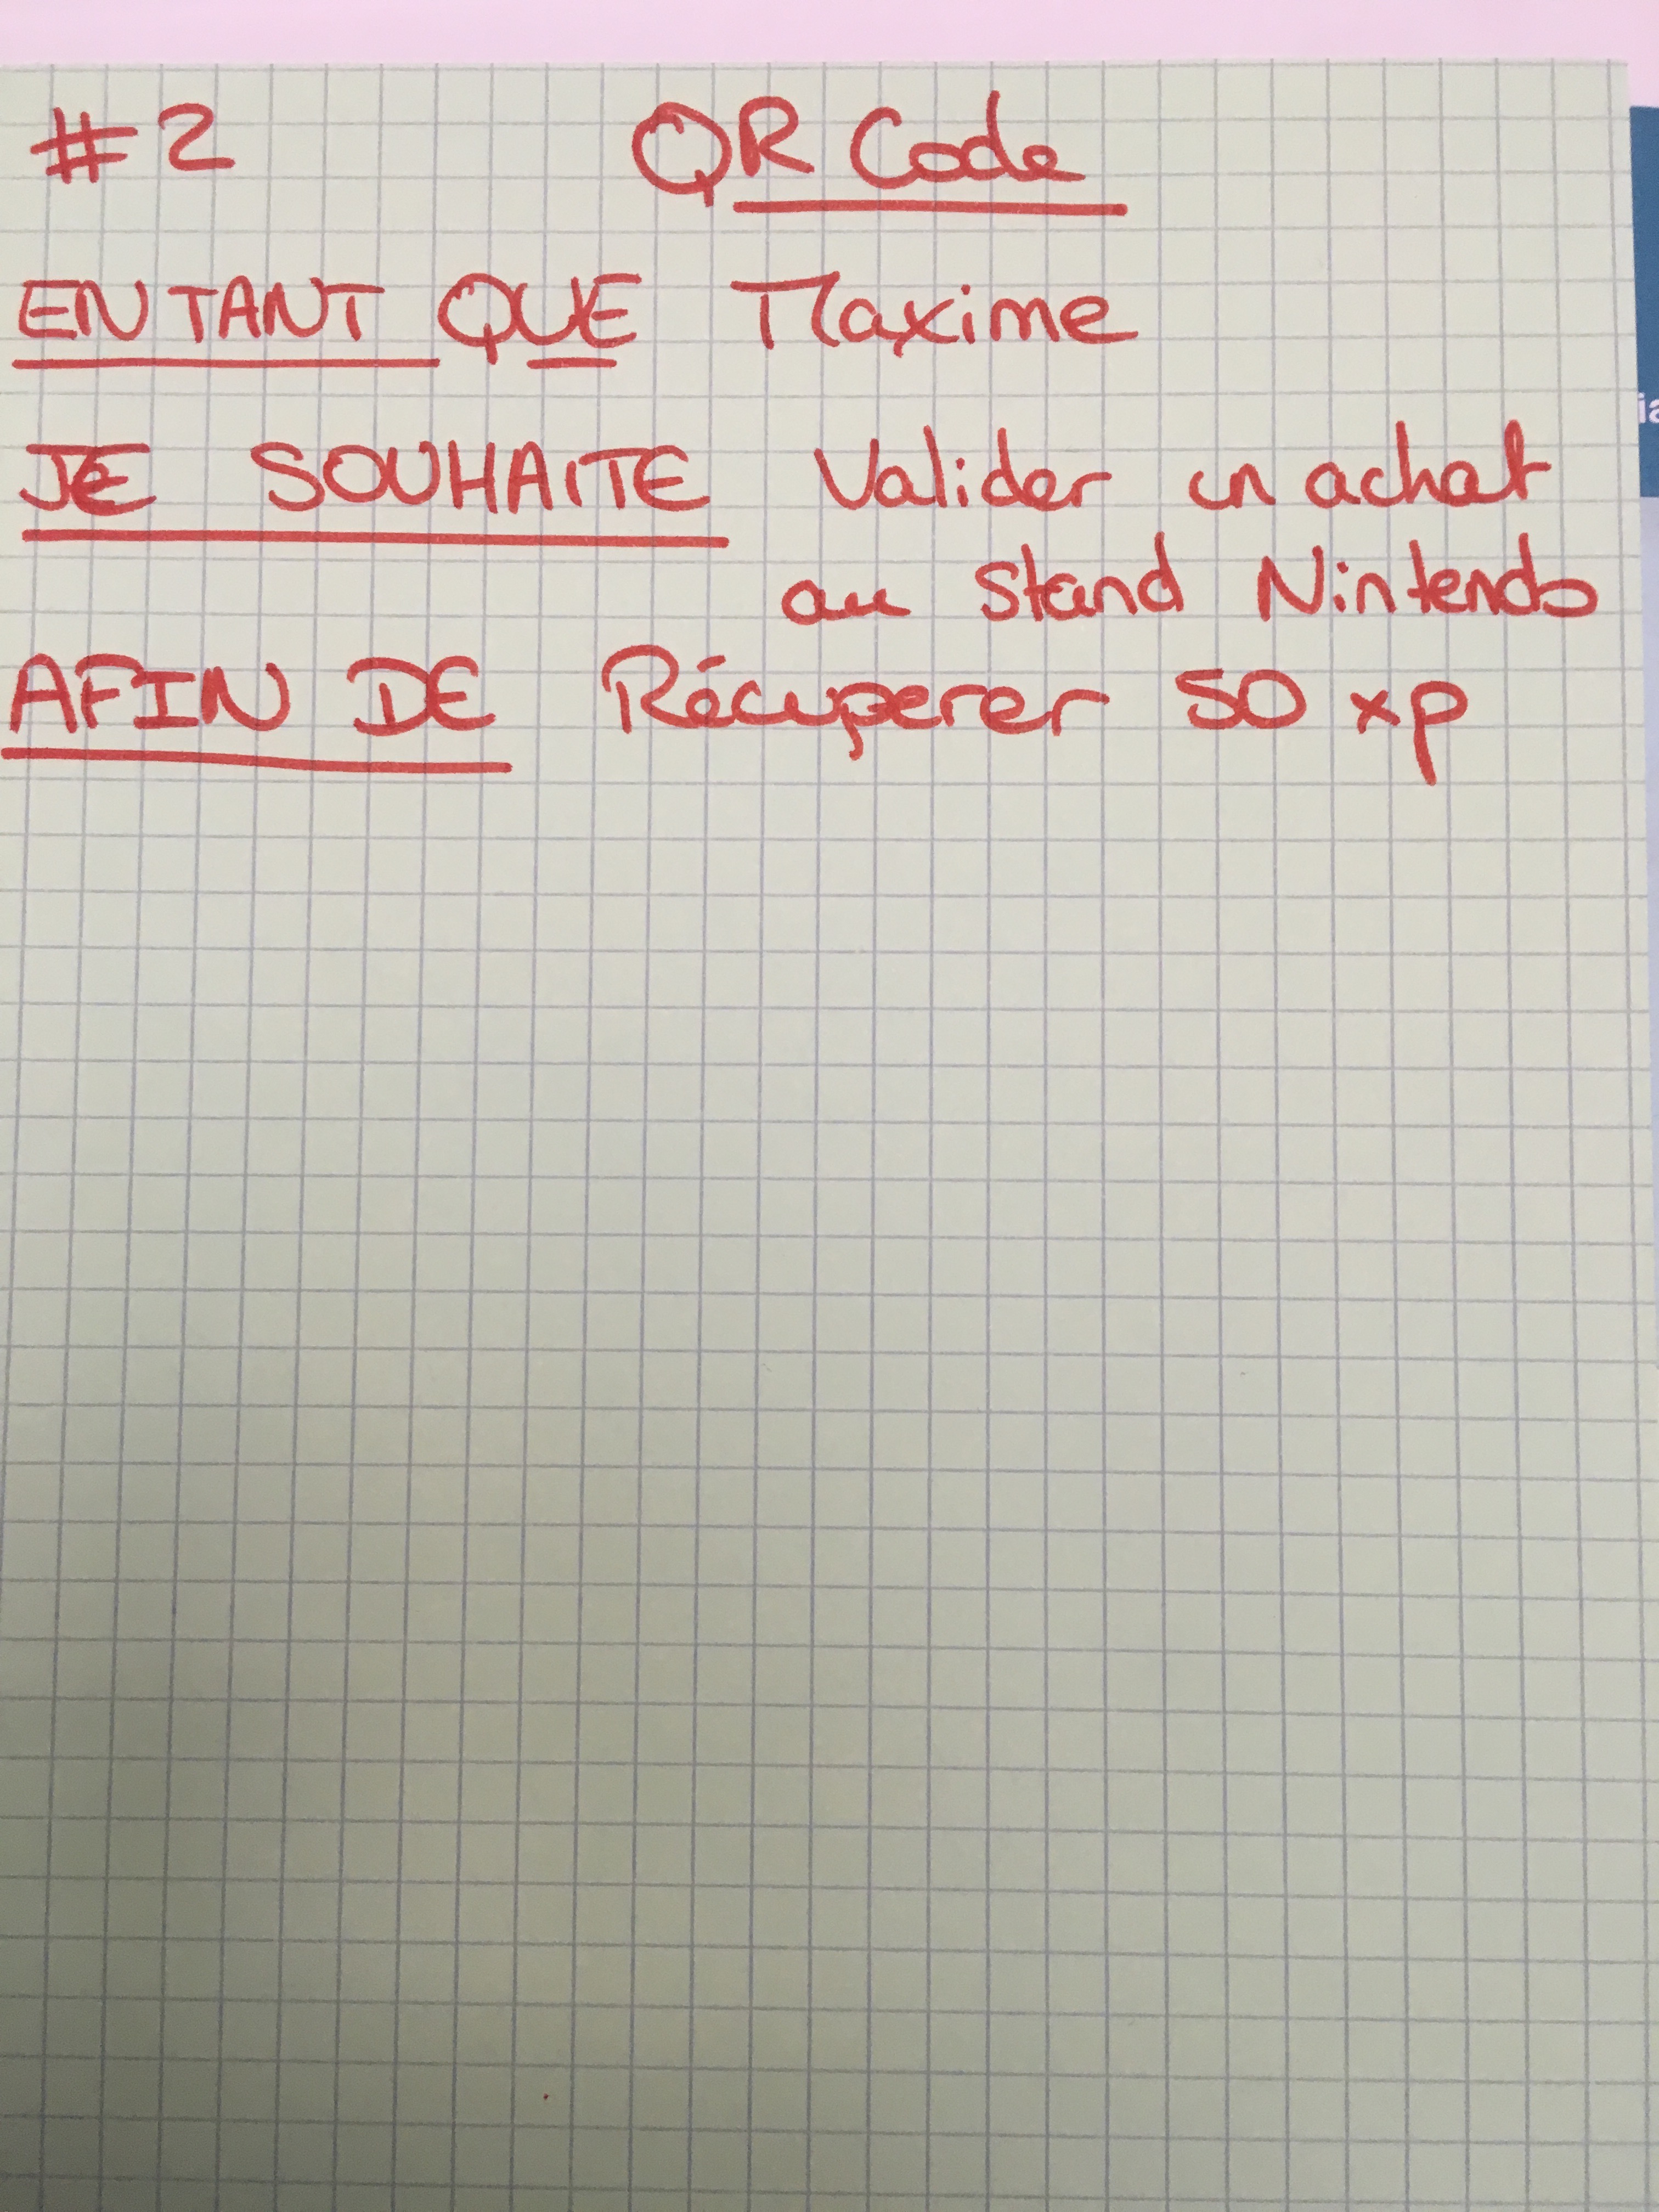 #2 QR Code
EN TANT QUE Maxime
JE SOUHAITE Valider un achat
au Stand Nintendo
AFIN DE Récuperer 50 xp
ia